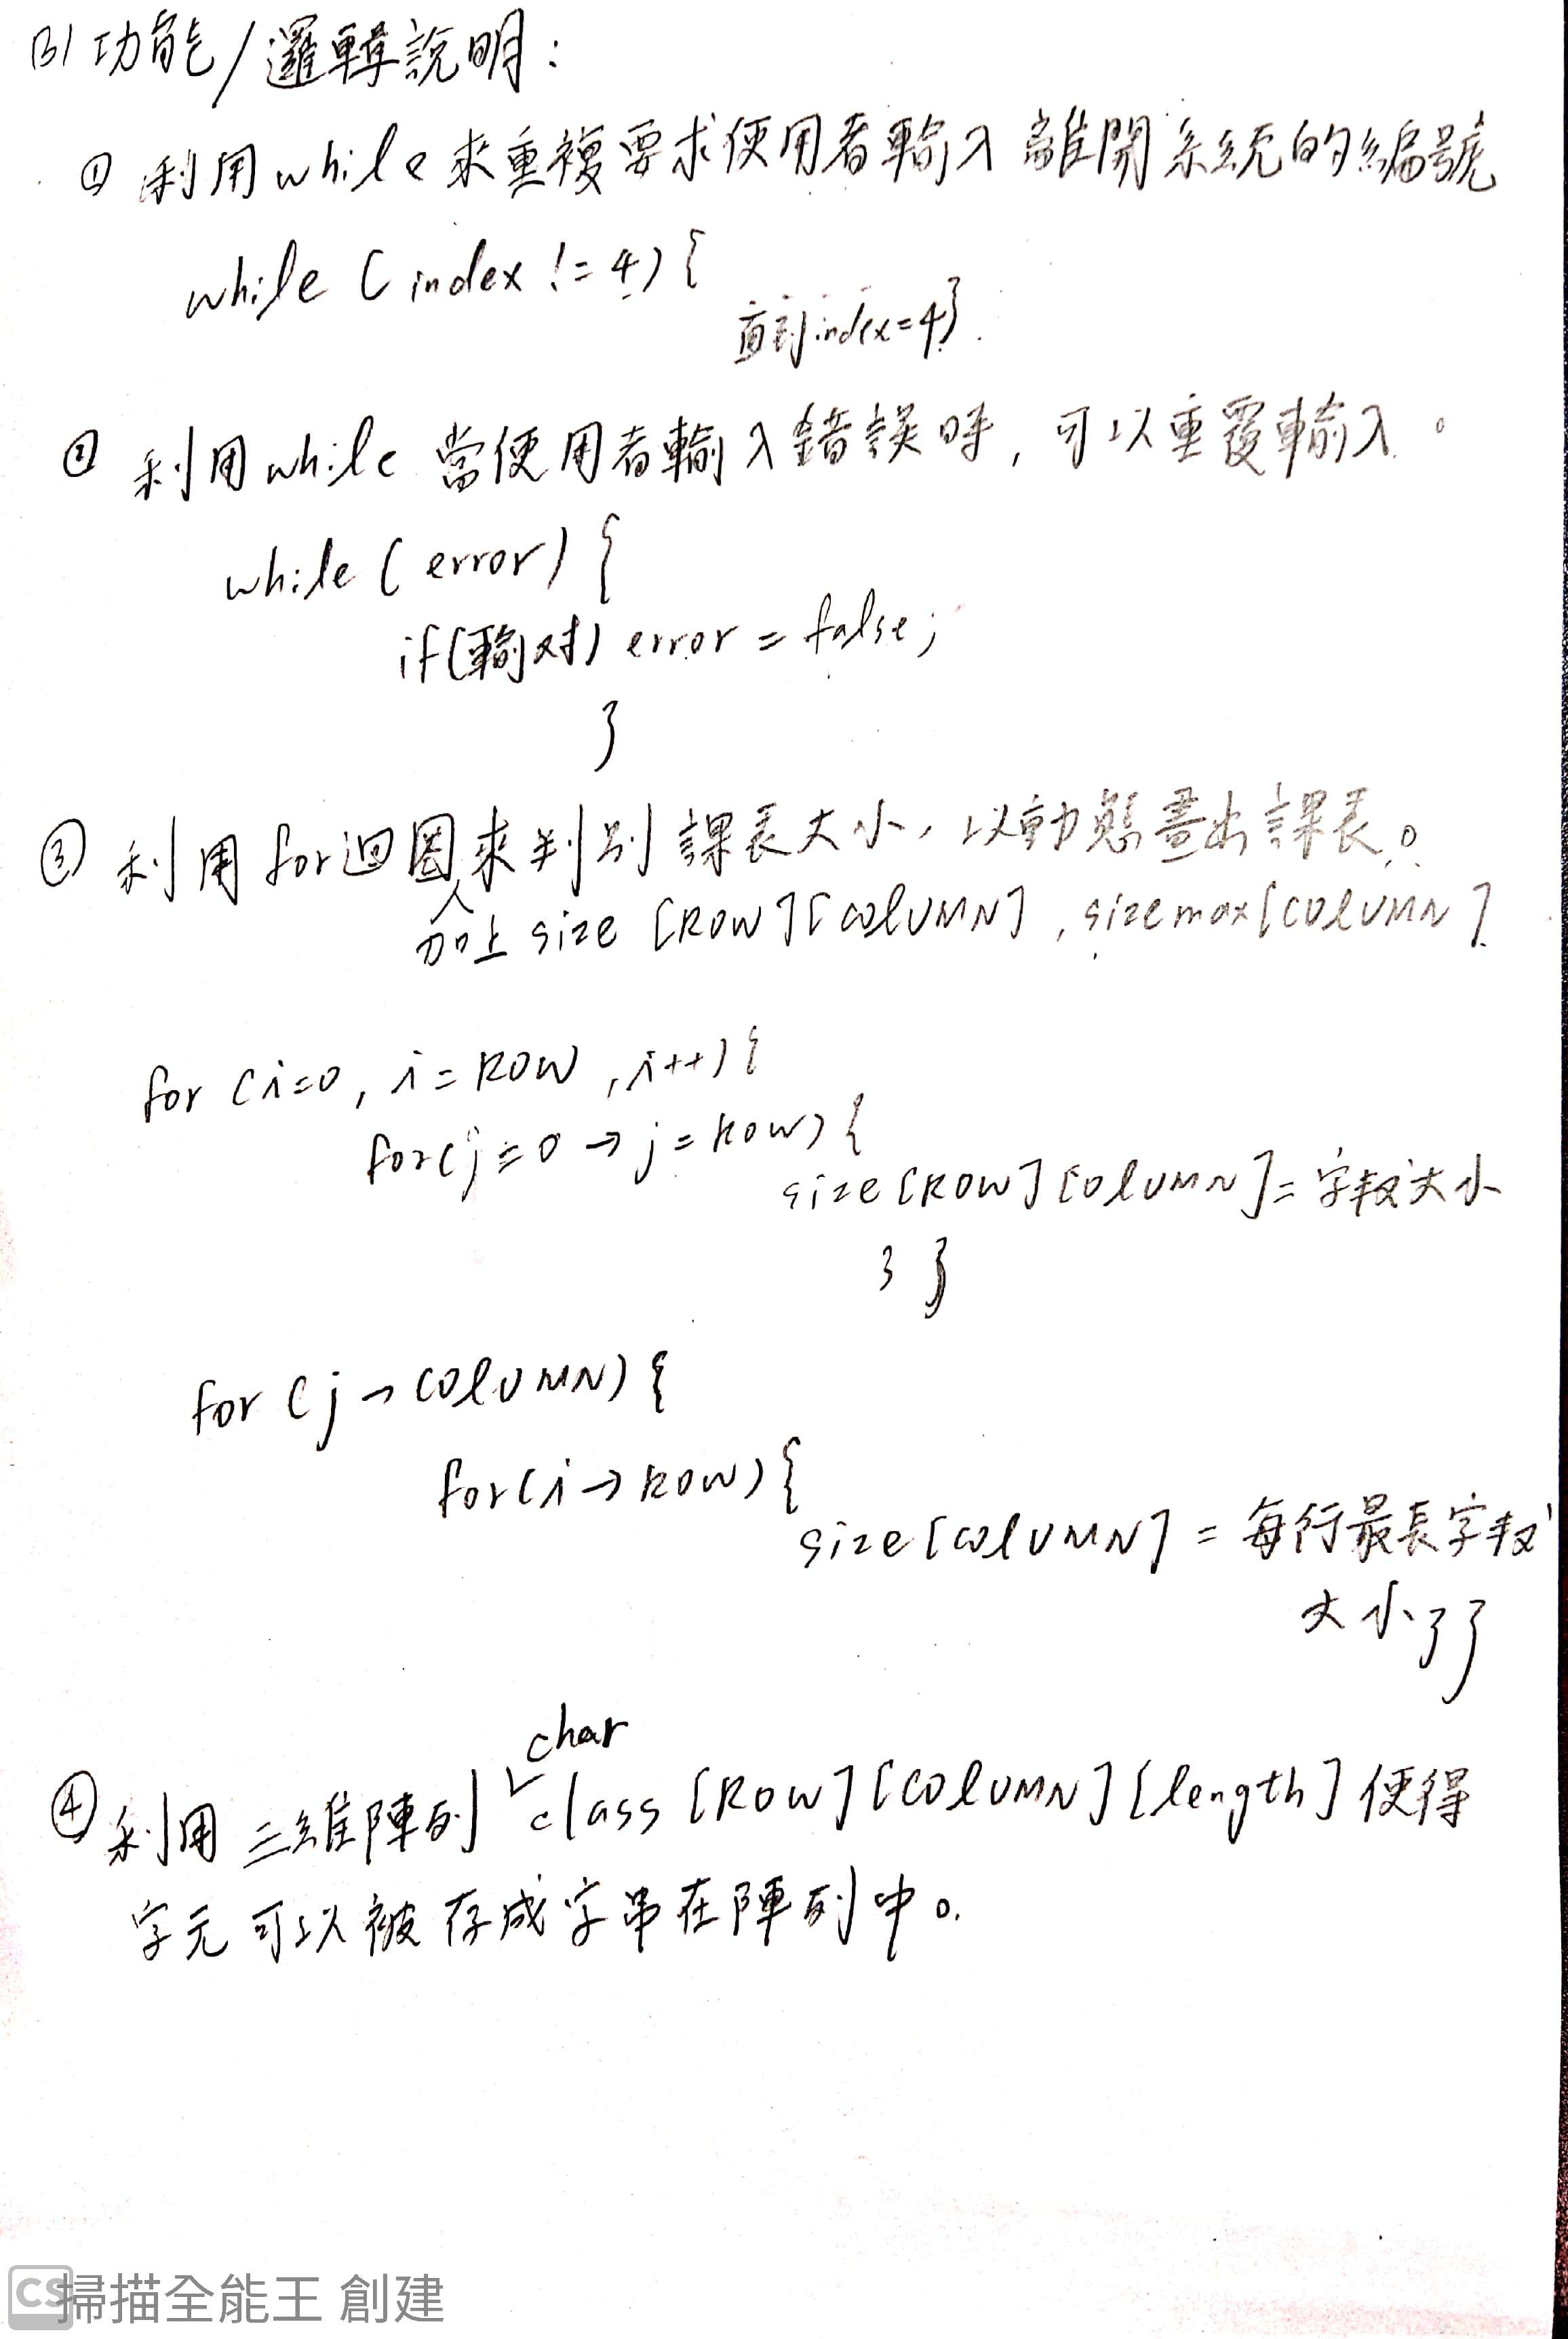 (3) 功能/邏輯說明:
① 利用while來重複要求使用者輸入離開系統的編號
while (index != 4) {
直到index=4}
② 利用while 當使用者輸入錯誤時, 可以重覆輸入。
while (error) {
if(輸对) error = false;
}
③ 利用for迴圈來判別課表大小, 以動態畫出課表。
加上 size [ROW][COlUMN], sizemax[COlUMN]
for (i=0, i=ROW, i++) {
for(j=0 → j=ROW) {
size[ROW][COlUMN]=字段大小
} }
for (j → COlUMN) {
for(i → ROW) {
size[COlUMN] = 每行最長字段
大小 } }
char
④ 利用二維陣列 class [ROW][COlUMN][length] 使得
字元可以被存成字串在陣列中。
CS 掃描全能王 創建